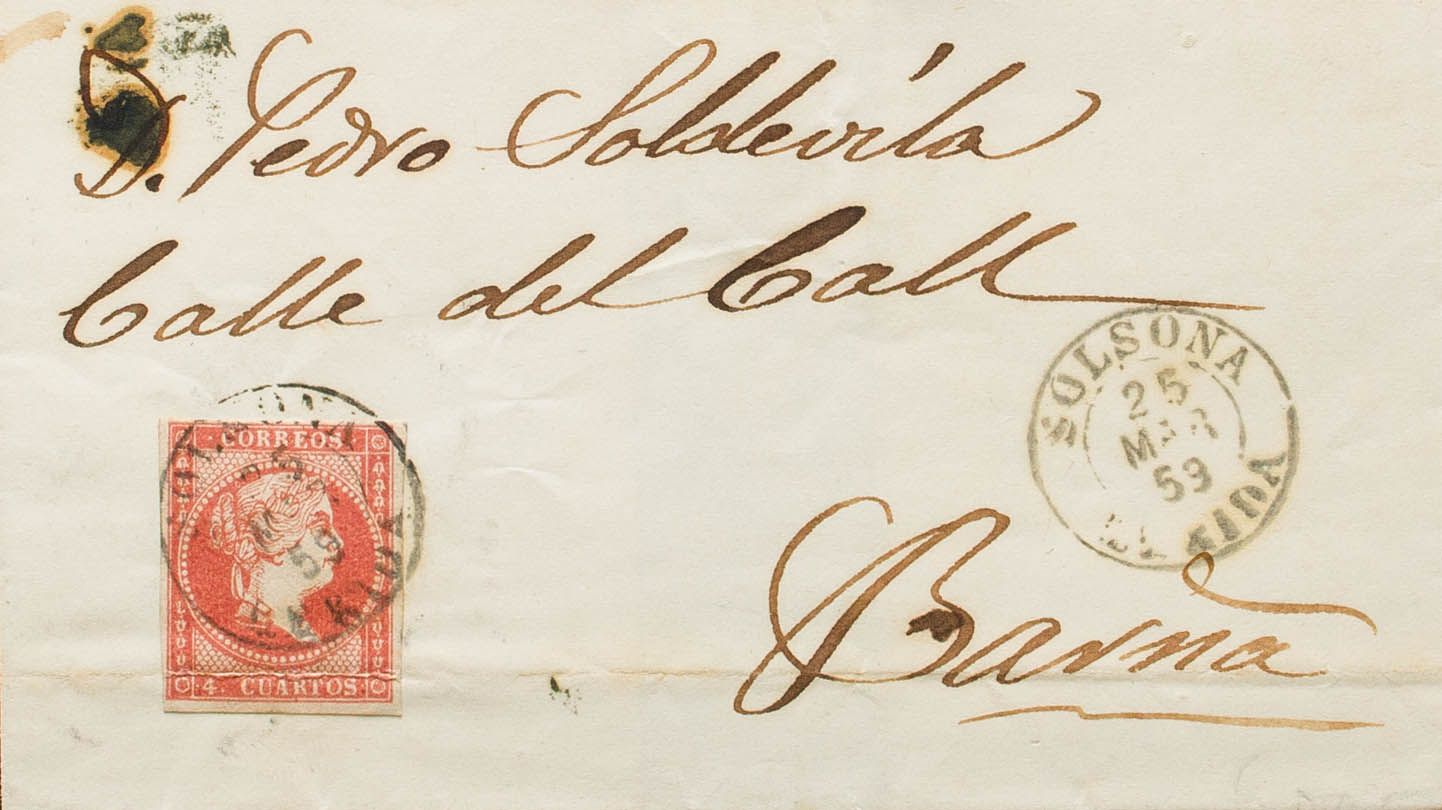 D. Pedro Soldevila
Calle del Call
SOLSONA
25
MAR
59
CORREOS
59
4 CUARTOS
Barna